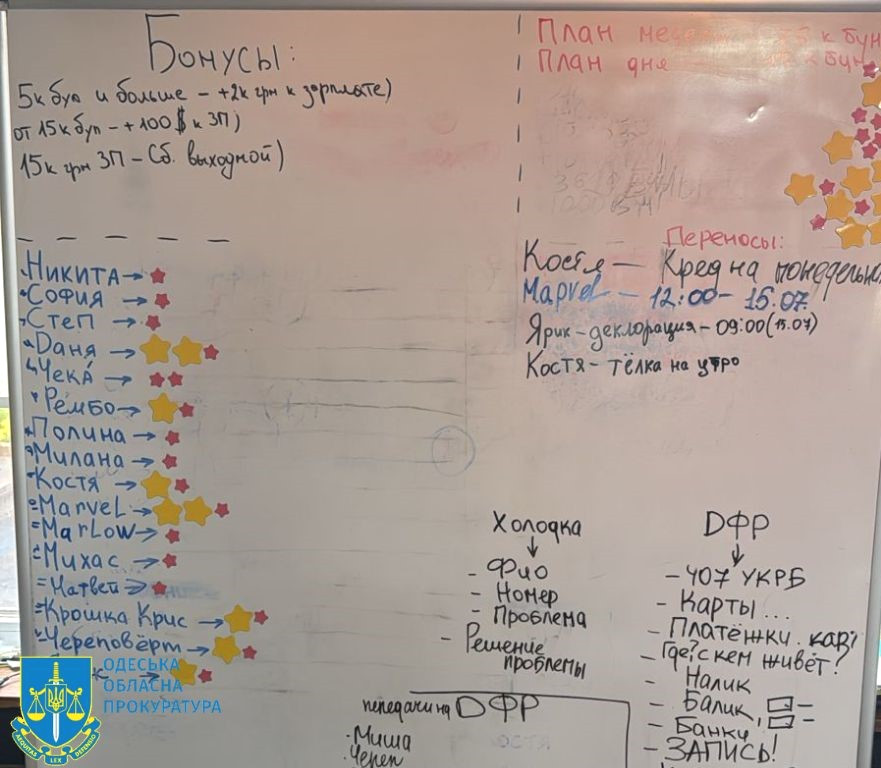 Бонусы:
5к буп и больше - +2к грн к зарплате)
от 15к буп - +100$ к ЗП)
15к грн ЗП - Сб. выходной)
План
к бун
План дня
к бун
Переносы:
Костя — Кред на понедельн
Marvel - 12:00 - 15.07.
Ярик - деклорация - 09:00 (15.07)
Костя - тёлка на утро
Никита →
София →
Степ →
Даня →
Чека →
Рембо →
Полина →
Милана →
Костя →
Marvel →
Marlow →
Михас →
Чатвей →
Крошка Крис →
Череповёрт →
Холодка
↓
- Фио
- Номер
- Проблема
- Решение
проблемы
ДФР
↓
- ЧО7 УКРБ
- Карты...
- Платёжки. кав?
- Где? с кем живёт?
- Налик
- Балик,
- Банку
- ЗАПИСЬ!
передачи на ДФР
· Миша
· Череп
ОДЕСЬКА
ОБЛАСНА
ПРОКУРАТУРА